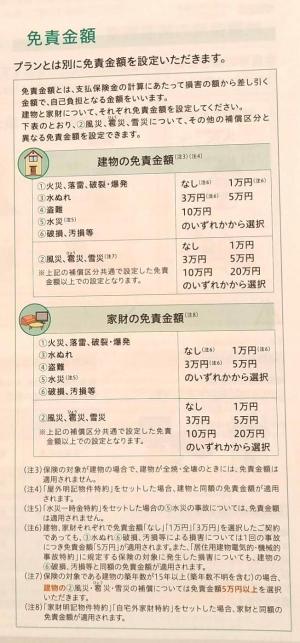 免責金額
プランとは別に免責金額を設定いただきます。
免責金額とは、支払保険金の計算にあたって損害の額から差し引く
金額で、自己負担となる金額をいいます。
建物と家財について、それぞれ免責金額を設定してください。
下表のとおり、②風災、雹災、雪災について、その他の補償区分と
異なる免責金額を設定できます。
建物の免責金額(注3)(注4)
①火災、落雷、破裂・爆発
③水ぬれ
④盗難
⑤水災(注5)
⑥破損、汚損等
なし(注6) 1万円(注6)
3万円(注6) 5万円
10万円
のいずれかから選択
②風災、雹災、雪災(注7)
※上記の補償区分共通で設定した免責
金額以上での設定となります。
なし 1万円
3万円 5万円
10万円 20万円
のいずれかから選択
家財の免責金額(注8)
①火災、落雷、破裂・爆発
③水ぬれ
④盗難
⑤水災(注5)
⑥破損、汚損等
なし(注6) 1万円(注6)
3万円(注6) 5万円
のいずれかから選択
②風災、雹災、雪災
※上記の補償区分共通で設定した免責
金額以上での設定となります。
なし 1万円
3万円 5万円
10万円 20万円
のいずれかから選択
(注3)保険の対象が建物の場合で、建物が全焼・全壊のときには、免責金額は
適用されません。
(注4)「屋外明記物件特約」をセットした場合、建物と同額の免責金額が適用
されます。
(注5)「水災一時金特約」をセットした場合の⑤水災の事故については、免責金額
は適用されません。
(注6)建物、家財それぞれで免責金額「なし」「1万円」「3万円」を選択したご契約
であっても、③水ぬれ⑥破損、汚損等による損害については1回の事故
につき免責金額「5万円」が適用されます。また、「居住用建物電気的・機械的
事故特約」に規定する保険の対象に発生した損害についても、建物の
⑥破損、汚損等と同額の免責金額が適用されます。
(注7)保険の対象である建物の築年数が15年以上(築年数不明を含む)の場合、
建物の②風災・雹災・雪災の補償については免責金額5万円以上を選択
いただきます。
(注8)「家財明記物件特約」「自宅外家財特約」をセットした場合、家財と同額の
免責金額が適用されます。